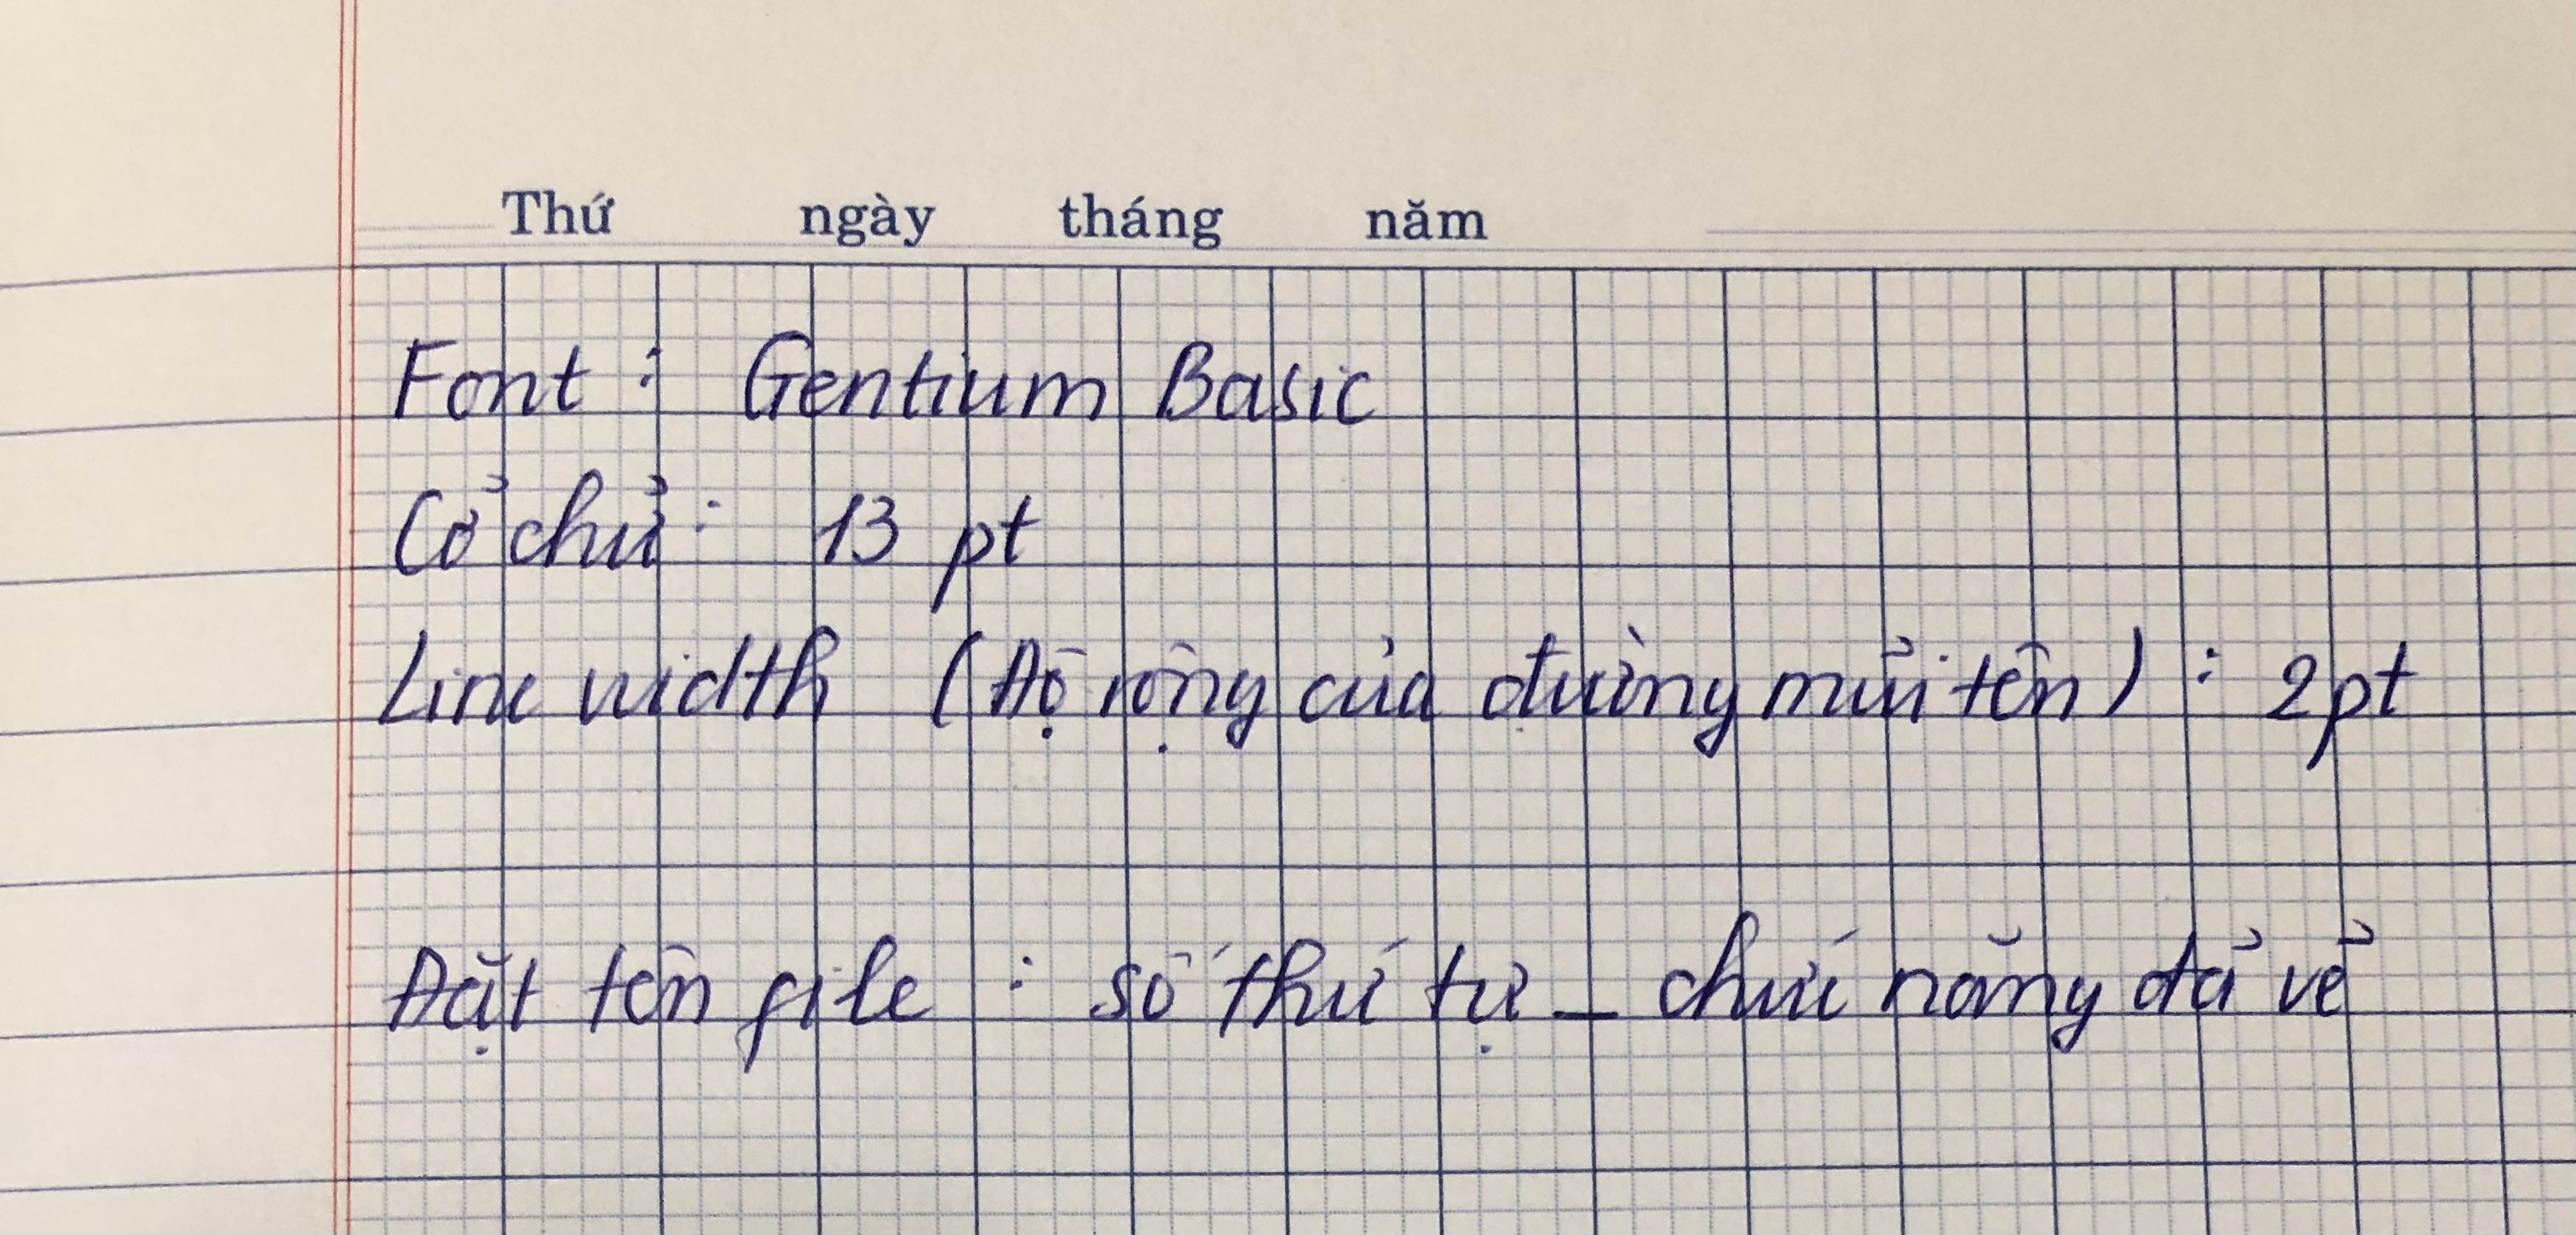 Thứ ngày tháng năm
Font : Gentium Basic
Cở chử : 13 pt
Line width (Độ rộng của đường mủi tên) : 2pt
Đặt tên file : số thứ tự _ chứ năng đả vẻ